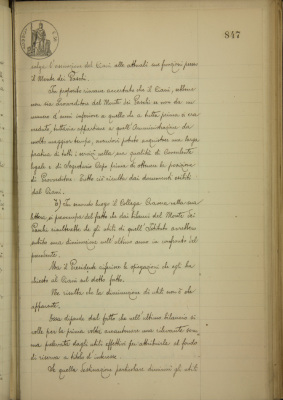 847
esige l'assunzione del Ciani alle attuali sue funzioni presso
il Monte dei Paschi.
In proposito rimane accertato che il Ciani, sebbene
non sia Provveditore del Monte dei Paschi se non da un
numero d'anni inferiore a quello che a tutta prima si era
creduto, tuttavia appartiene a quell'Amministrazione da
molto maggior tempo, avendovi potuto acquistare una larga
pratica di tutti i servizi nella sua qualità di Consulente
legale e di Segretario Capo prima di ottenere la posizione
di Provveditore. Tutto ciò risulta dai documenti esibiti
dal Ciani.
In secondo luogo il Collega nella sua
lettera si preoccupa del fatto che dai bilanci del Monte dei
Paschi risulterebbe che gli utili di quell'Istituto avrebbero
subito una diminuzione nell'ultimo anno in confronto del
precedente.
Il Presidente riferisce le spiegazioni che egli ha
chiesto al Ciani sul detto fatto.
Ne risulta che la diminuzione di utili non è che
apparente.
Essa dipende dal fatto che nell'ultimo bilancio si
volle per la prima volta una rilevante som
ma prelevata dagli utili effettivi per attribuirla al fondo
di riserva a titolo d'interesse.
Se quella destinazione particolare diminuì gli utili